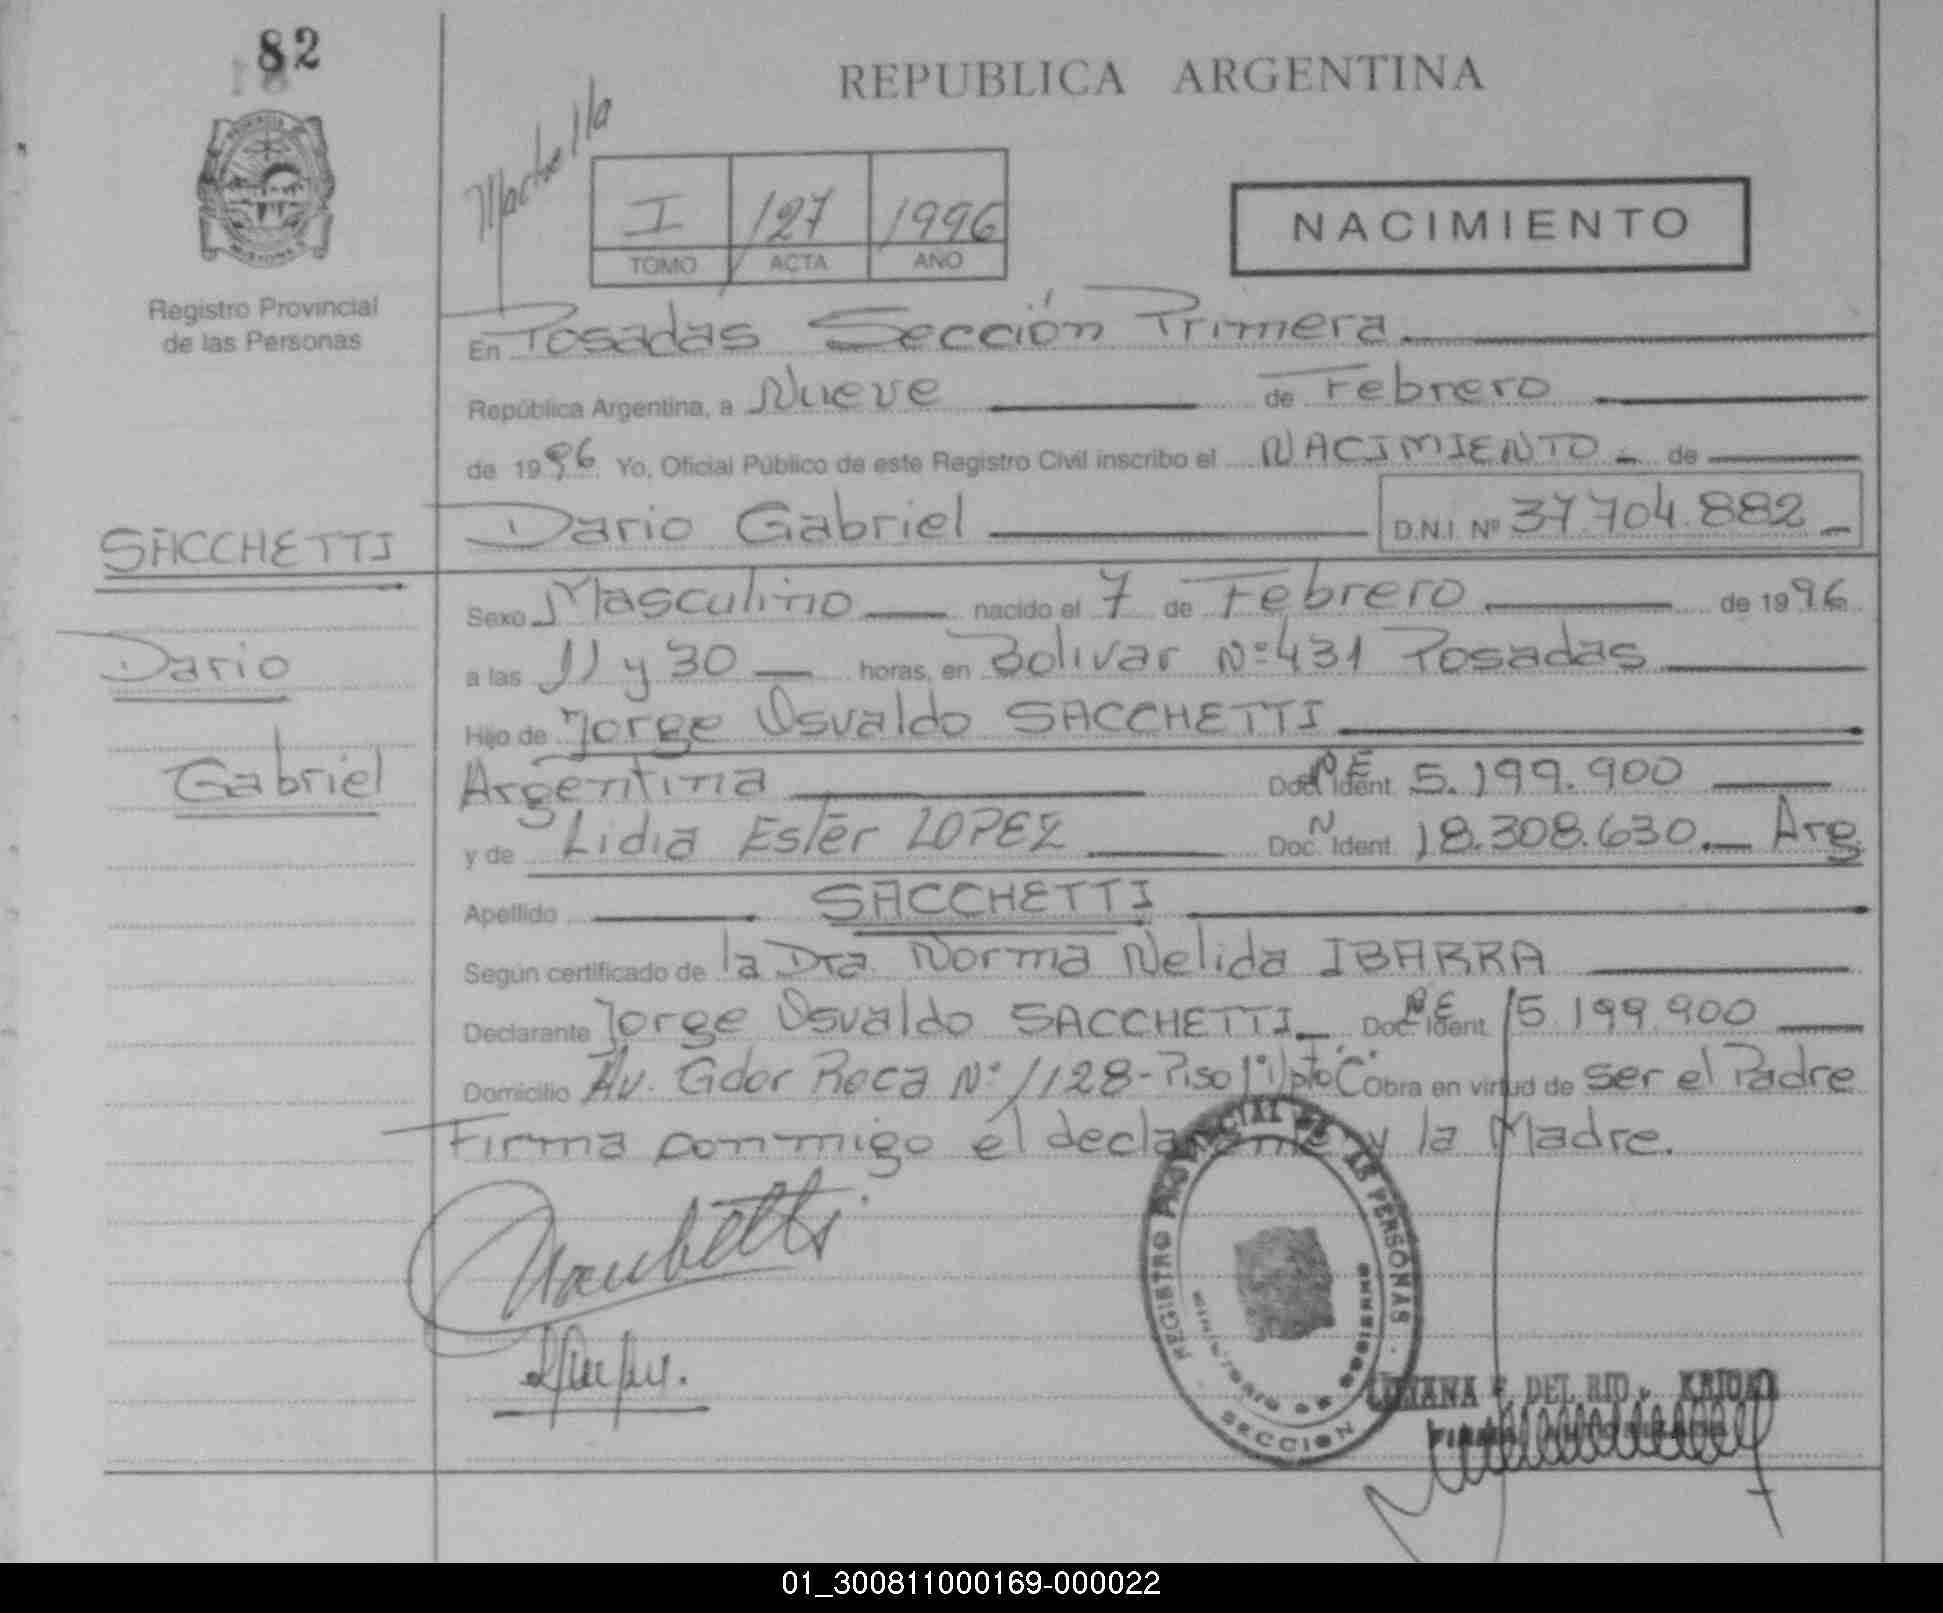 82
REPUBLICA ARGENTINA
I 127 1996
TOMO ACTA AÑO
NACIMIENTO
Registro Provincial
de las Personas
En Posadas Sección Primera
República Argentina, a Nueve de Febrero
de 1996 Yo, Oficial Público de este Registro Civil inscribo el NACIMIENTO de
Dario Gabriel D.N.I. Nº 37.704.882
SACCHETTI
Dario
Gabriel
Sexo Masculino nacido el 7 de Febrero de 1996
a las 11 y 30 horas, en Bolivar Nº 431 Posadas
Hijo de Jorge Osvaldo SACCHETTI
Argentina Doc. Ident. 5.199.900
y de Lidia Ester LOPEZ Doc. N Ident. 18.308.630. Arg
Apellido SACCHETTI
Según certificado de la Dra Norma Nelida IBARRA
Declarante Jorge Osvaldo SACCHETTI Doc. Ident. 5.199.900
Domicilio Av. Gdor Roca Nº 1128-Piso 1º Dpto "C" Obra en virtud de ser el Padre
Firma conmigo el declarante y la Madre.
REGISTRO PROVINCIAL DE LAS PERSONAS
MINISTERIO DE GOBIERNO
SECCION
DEL RIO
01_300811000169-000022